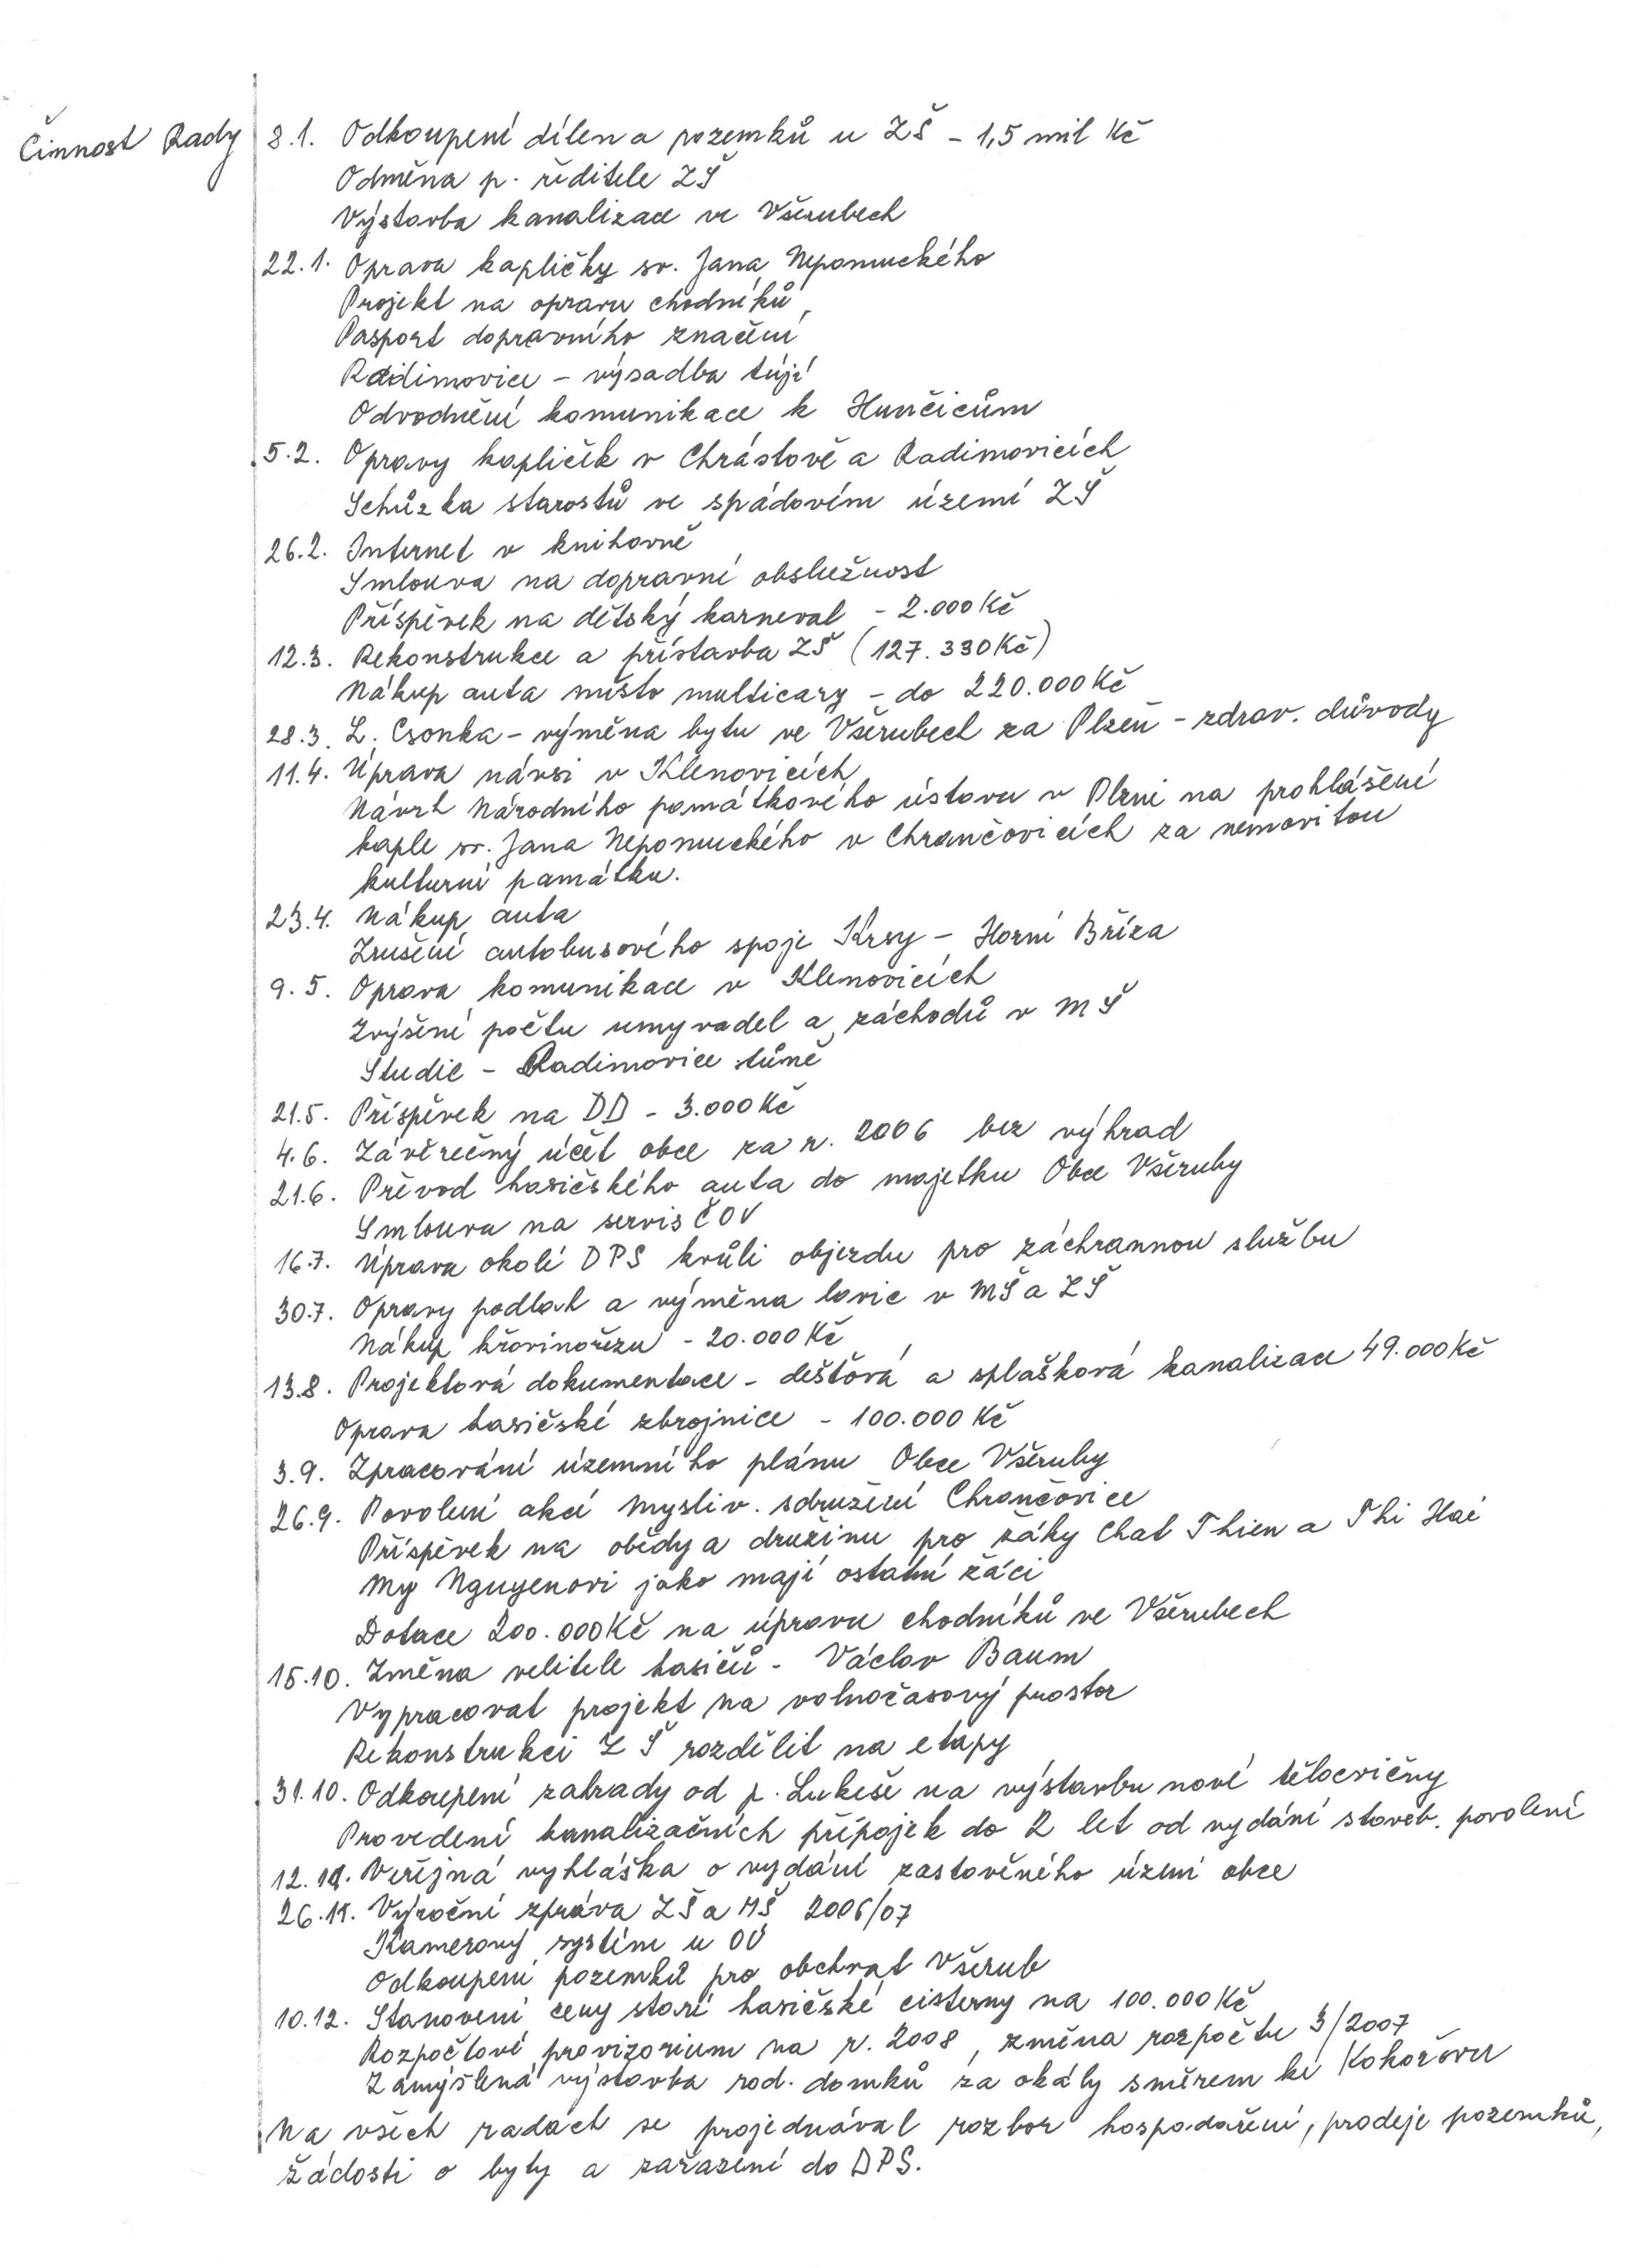 Činnost Rady
8.1. Odkoupení dílen a pozemků u ZŠ - 1,5 mil Kč
Odměna p. ředitele ZŠ
Výstavba kanalizace ve Všerubech
22.1. Oprava kapličky sv. Jana Nepomuckého
Projekt na opravu chodníků
Pasport dopravního značení
Radimovice - výsadba tújí
Odvodnění komunikace k Hunčicům
5.2. Opravy kapliček v Chrástově a Radimovicích
Schůzka starostů ve spádovím území ZŠ
26.2. Internet v knihovně
Smlouva na dopravní obslužnost
Příspěvek na dětský karneval - 2.000 Kč
12.3. Rekonstrukce a přístavba ZŠ (127.330 Kč)
Nákup auta místo multicary - do 220.000 Kč
28.3. L. Csonka - výměna bytu ve Všerubech za Plzeň - zdrav. důvody
11.4. Úprava návsi v Klenovicích
Návrh Národního památkového ústavu v Plzni na prohlášení
kaple sv. Jana Nepomuckého v Chrančovicích za nemovitou
kulturní památku.
23.4. Nákup auta
Zrušení autobusového spoje Krsy - Horní Bříza
9.5. Oprava komunikace v Klenovicích
Zvýšení počtu umyvadel a záchodů v MŠ
Studie - Radimovice tůně
21.5. Příspěvek na DD - 3.000 Kč
4.6. Závěrečný účet obce za r. 2006 bez výhrad
21.6. Převod hasičského auta do majetku Obce Všeruby
Smlouva na servis ČOV
16.7. Úprava okolí DPS kvůli objezdu pro záchrannou službu
30.7. Opravy podlah a výměna lavic v MŠ a ZŠ
Nákup křovinořezu - 20.000 Kč
13.8. Projektová dokumentace - dešťová a splašková kanalizace 49.000 Kč
Oprava hasičské zbrojnice - 100.000 Kč
3.9. Zpracování územního plánu Obce Všeruby
26.9. Povolení akcí Mysliv. sdružení Chrančovice
Příspěvek na obědy a družinu pro žáky Chat Thien a Thi Hai
My Nguyenovi jako mají ostatní žáci
Dotace 200.000 Kč na úpravu chodníků ve Všerubech
15.10. Změna velitele hasičů - Václav Baum
Vypracovat projekt na volnočasový prostor
Rekonstrukci ZŠ rozdělit na etapy
31.10. Odkoupení zahrady od p. Lukeše na výstavbu nové tělocvičny
Provedení kanalizačních přípojek do 2 let od vydání staveb. povolení
12.11. Veřejná vyhláška o vydání zastavěného území obce
26.11. Výroční zpráva ZŠ a MŠ 2006/07
Kamerový systém u OÚ
Odkoupení pozemků pro obchvat Všerub
10.12. Stanovení ceny staré hasičské cisterny na 100.000 Kč
Rozpočtové provizorium na r. 2008, změna rozpočtu 3/2007
Zamýšlená výstavba rod. domků za okály směrem ke Kokořovu
Na všech radách se projednával rozbor hospodaření, prodeje pozemků,
žádosti o byty a zařazení do DPS.